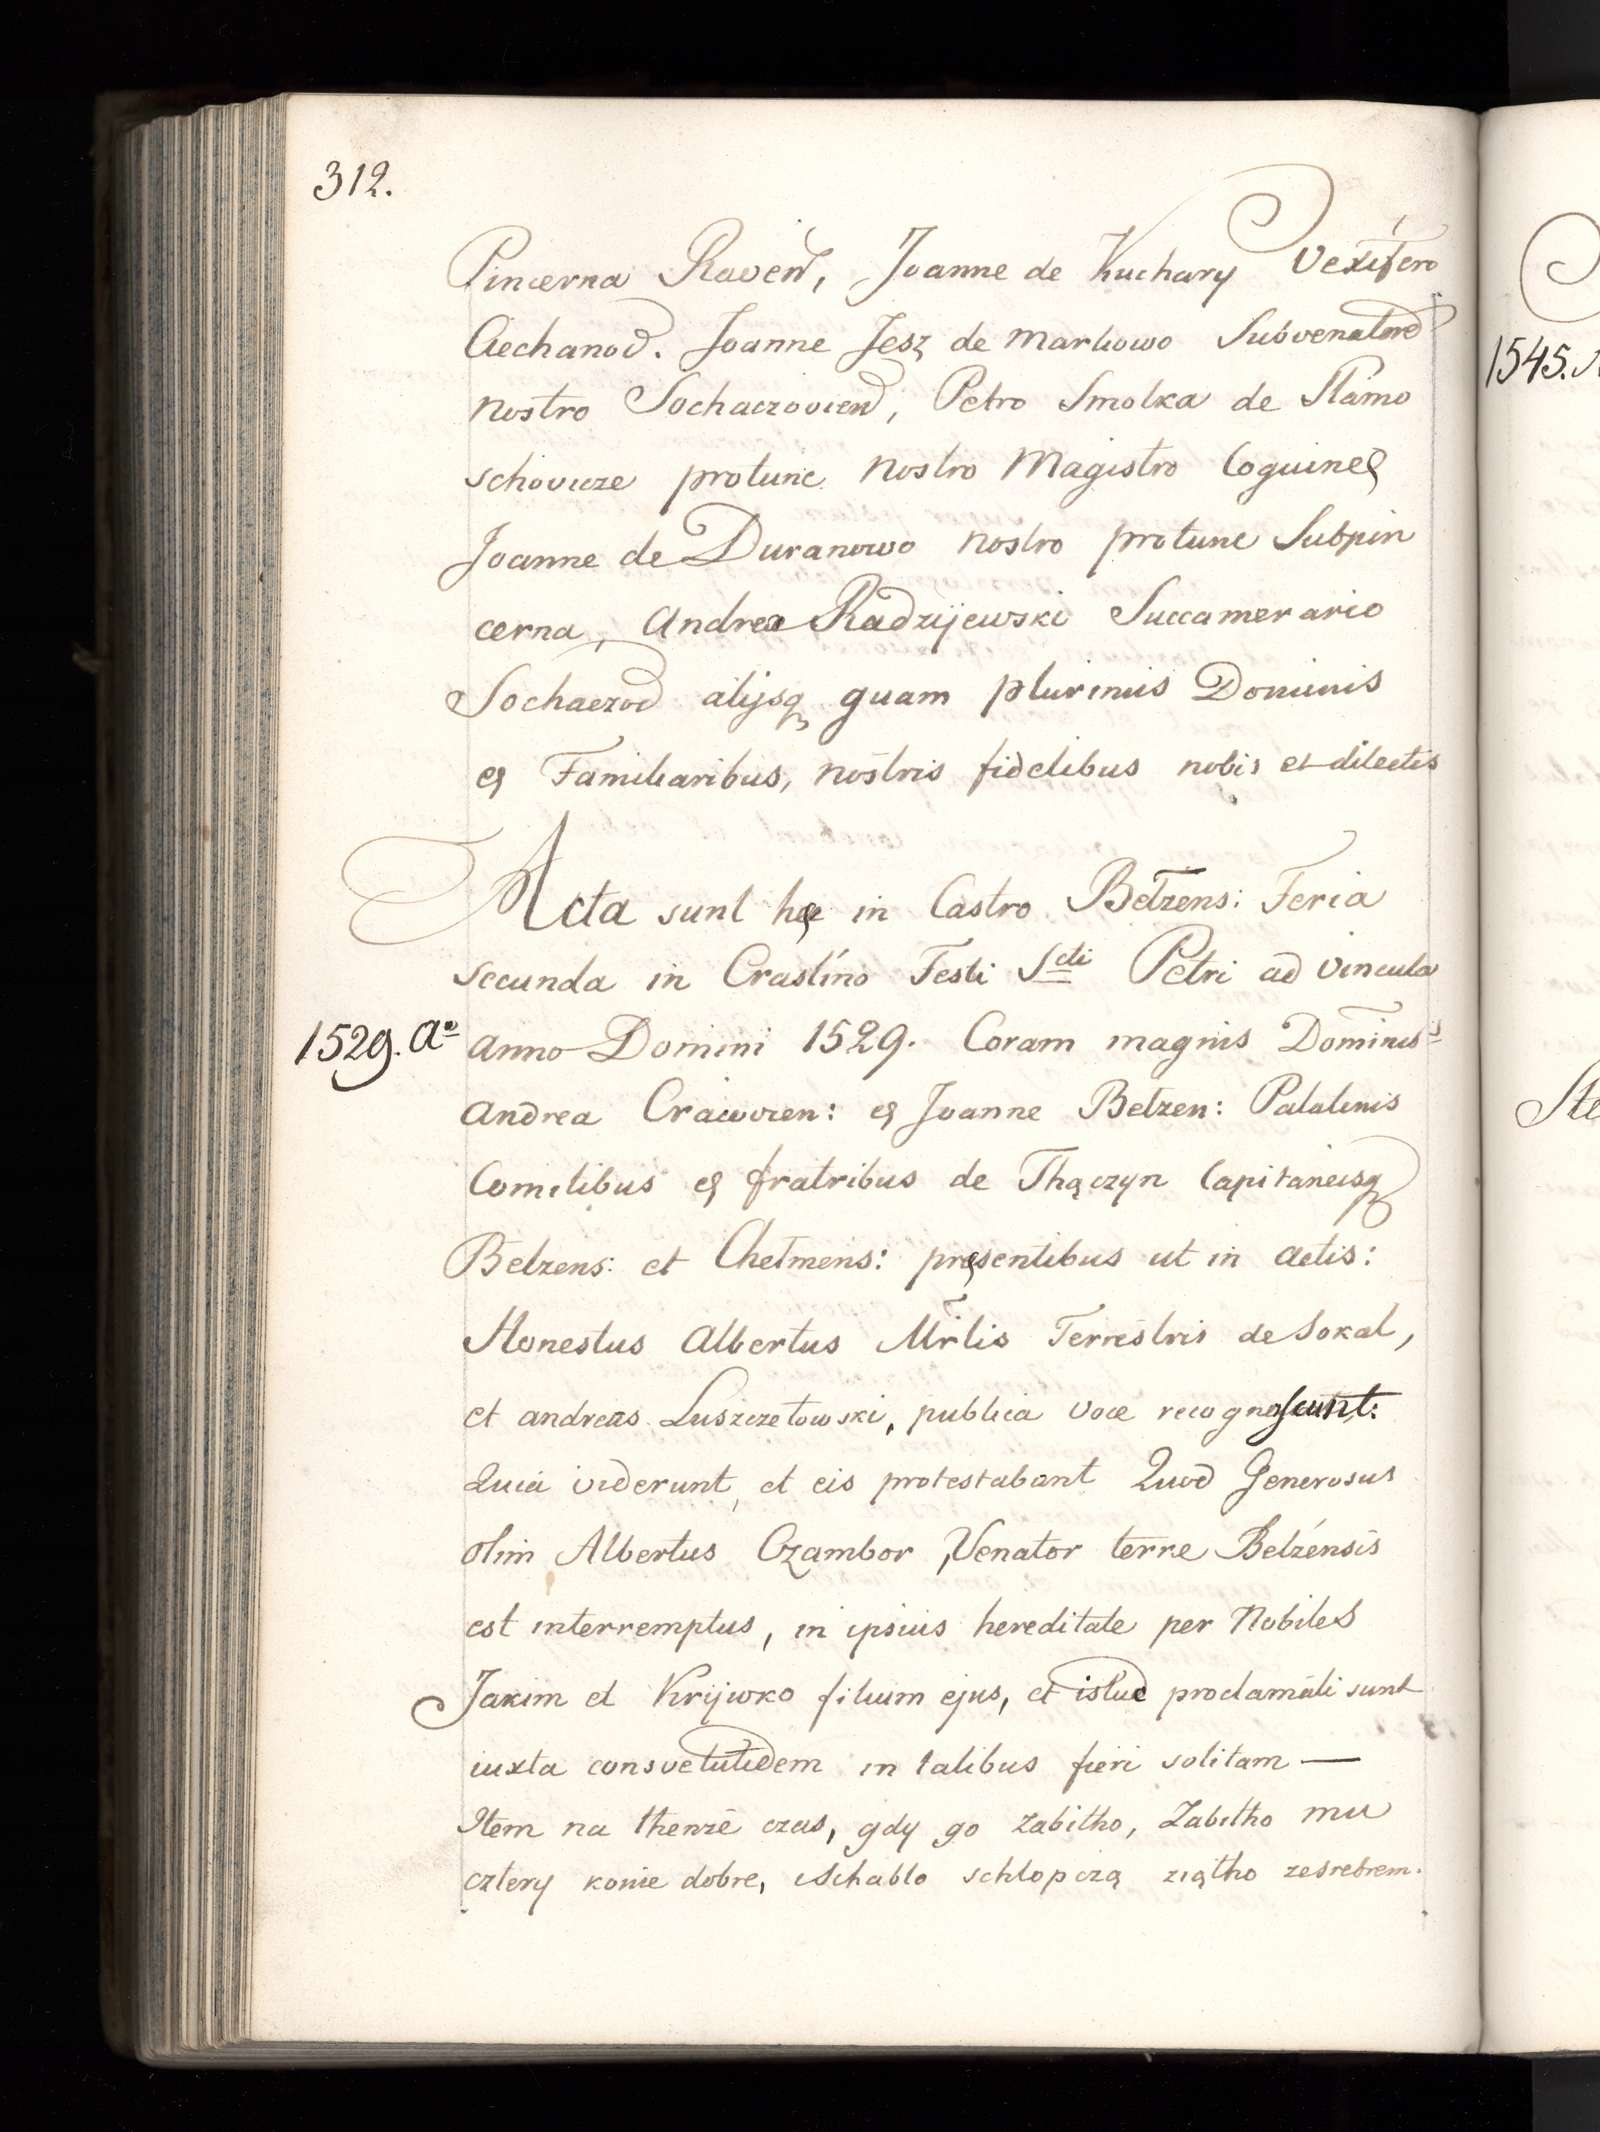 312.
Pincerna Raven, Joanne de Kuchary Vexifero
Ciechanov. Joanne Jesz de Markowo Subvenatore
nostro Sochaczovien, Petro Smolka de Stamo
schovicze protunc nostro Magistro Coquine
Joanne de Duranowo nostro protunc Subpin
cerna, Andrea Radzijewski Succamerario
Sochaczov alijsq quam plurimis Dominis
et Familiaribus, nostris fidelibus nobis et dilectis
Acta sunt hęc in Castro Belzens: Feria
secunda in Crastino Festi Scti Petri ad Vincula
1529. Aº anno Domini 1529. Coram magnis Dominis
Andrea Cracovien: et Joanne Belzen: Palatinis
Comitibus et fratribus de Thączyn Capitaneisq
Belzens: et Chelmens: pręsentibus ut in actis:
Honestus Albertus Mrlis Terrestris de Sokal,
et andreas Luszczetowski, publica voce recognoscunt:
Quia viderunt, et eis protestabant Quod Generosus
olim Albertus Czambor, Venator terre Belzensis
est interremptus, in ipsius hereditate per Nobiles
Jakim et Krijwko filium ejus, et istud proclamati sunt
iuxta consvetutidem in talibus fieri solitam —
Item na thenze czas, gdy go zabitho, Zabitho mu
cztery konie dobre, Schablo schlopczą ziątho zesrebrem.
1545.